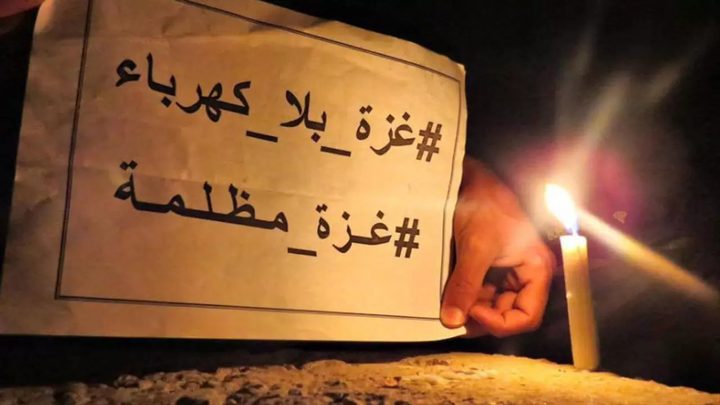 #غزة_بلا_كهرباء
#غزة_مظلمة